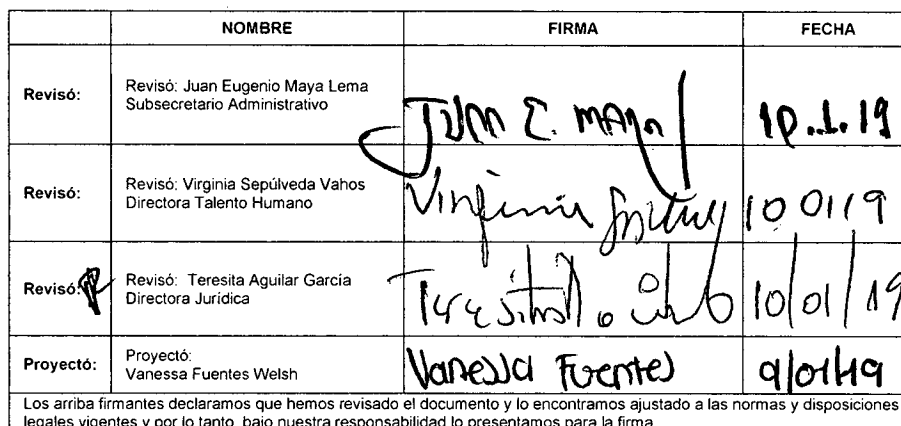 NOMBRE FIRMA FECHA
Revisó: Revisó: Juan Eugenio Maya Lema
Subsecretario Administrativo
JUAN E. MAYA 10.1.19
Revisó: Revisó: Virginia Sepúlveda Vahos
Directora Talento Humano
Virginia 10 01/19
Revisó: Revisó: Teresita Aguilar García
Directora Jurídica
Teresita 10/01/19
Proyectó: Proyectó:
Vanessa Fuentes Welsh
Vanessa Fuentes 9/01/19
Los arriba firmantes declaramos que hemos revisado el documento y lo encontramos ajustado a las normas y disposiciones
legales vigentes y por lo tanto, bajo nuestra responsabilidad lo presentamos para la firma.